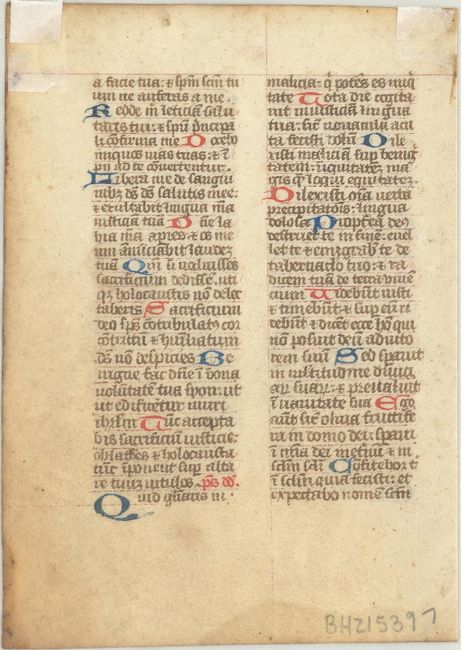 a facie tua: ⁊ spm scm tu
um ne auferas a me.
Redde m leticia salu
taris tui: ⁊ spu pncipa
li cofirma me Docebo
iniquos uias tuas: ⁊ i
pii ad te couertentur.
Libera me de sangui
nibz ds ds salutis mee:
⁊ exultabit lingua mea
iusticiam tua Dne la
bia mea apies: ⁊ os me
um anuciabit laudez
tua Qm si uoluisses
sacrificium dedisse. uti
qz holocaustis no delec
taberis Sacrificium
deo sps cotribulat9 cor
cotritu ⁊ humiliatum
ds no despicies Be
nigne fac dne i bona
uoluntate tua syon: ut
ut edificetur muri
ihrlm Tuc accepta
bis sacrificiu iusticie:
oblacoes ⁊ holocausta
tuc iponent sup alta
re tuuz uitulos. ps dd.
Quid gliaris in
malicia: q potes es iniq
tate Tota die cogita
uit iniusticia lingua
tua: sic nouacula acu
ta fecisti dolu Dile
xisti malicia sup benig
tatem: iniquitatez ma
gis q loqui equitatez
Dilexisti oia uerba
precipitatois: lingua
dolosa Propterea de9
destruet te in fine: euel
let te ⁊ emigrabit te de
tabernaclo tuo: ⁊ ra
dicem tua de terra uiue
cium Videbut iusti
⁊ timebut: ⁊ sup eu ri
debut ⁊ dicet ecce ho qui
no posuit deu adiuto
rem suu Sed sperauit
in multitud ine diuici
arz suarz: ⁊ preualuit
i uanitate sua Ego
aut sic oliua fructife
ra in domo dei: speraui
i mia dei mei i etnu ⁊ in
sclm scli Cofitebor t
i sclm quia fecisti: et
expectabo nomen tuum
BHZ15397